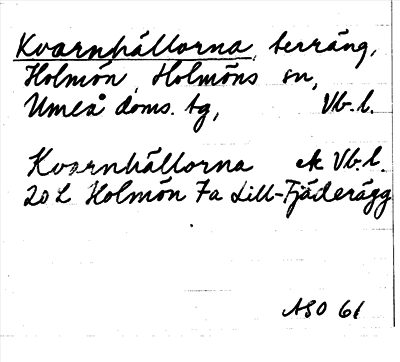 Kvarnhällorna, terräng,
Holmön, Holmöns sn,
Umeå doms. tg, Vb. l.
Kvarnhällorna ek Vb. l.
20 L Holmön 7a Lill-Fjäderägg
ASO 61